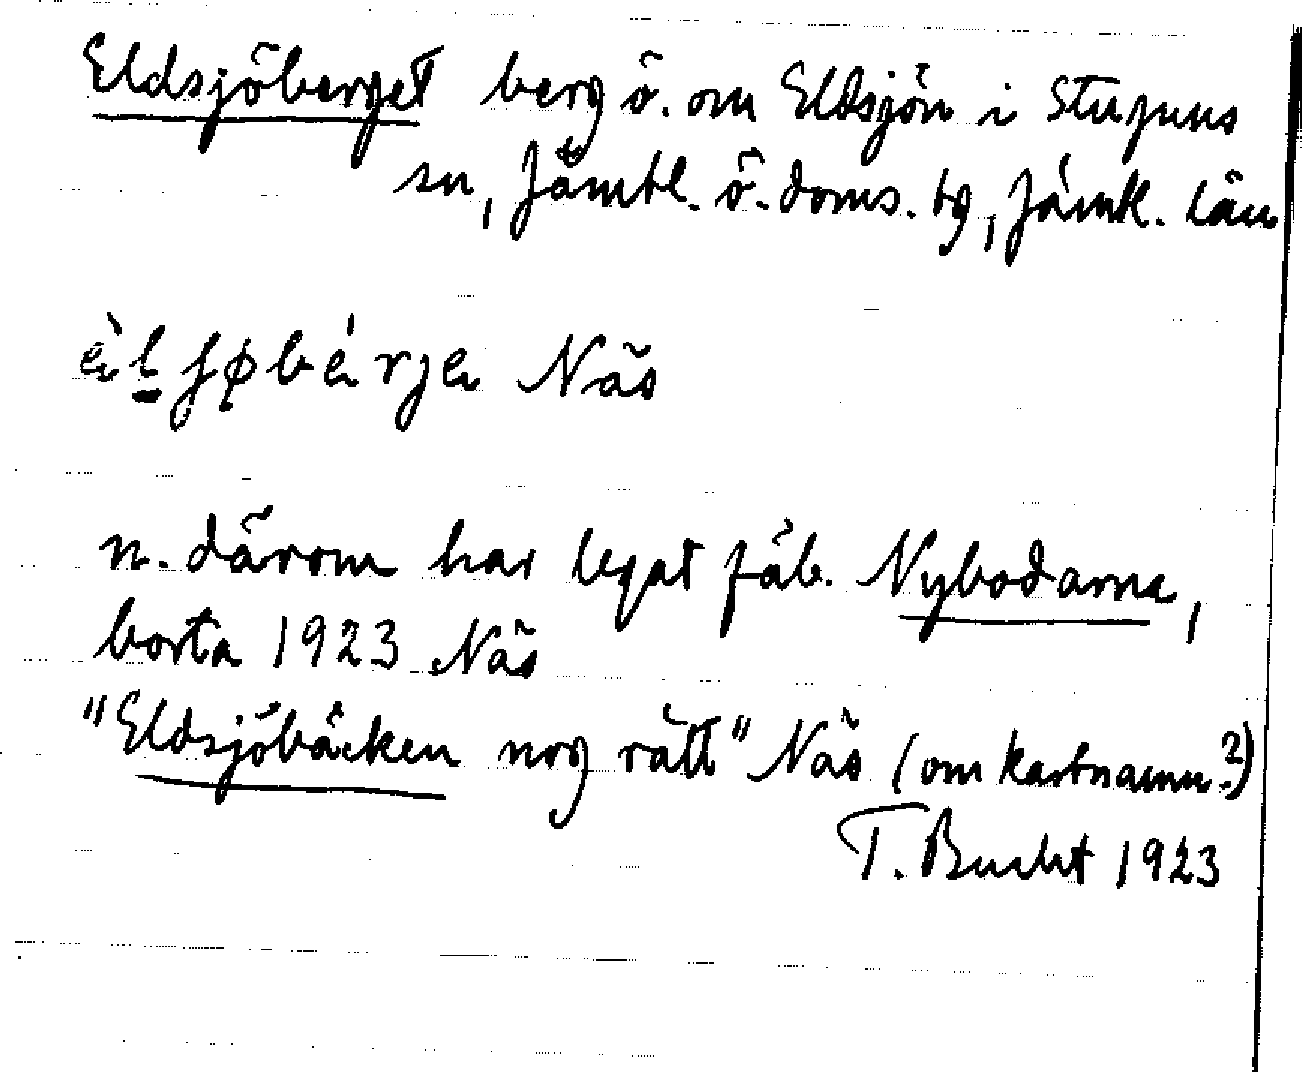 Eldsjöberget berg ö. om Eldsjön i Stuguns
sn, Jämtl. ö. doms. tg, Jämtl. län
Näs
n. därom har legat fäb. Nybodarna,
borta 1923 Näs
"Eldsjöbäcken nog rätt" Näs (om kartnamn?)
T. Bucht 1923